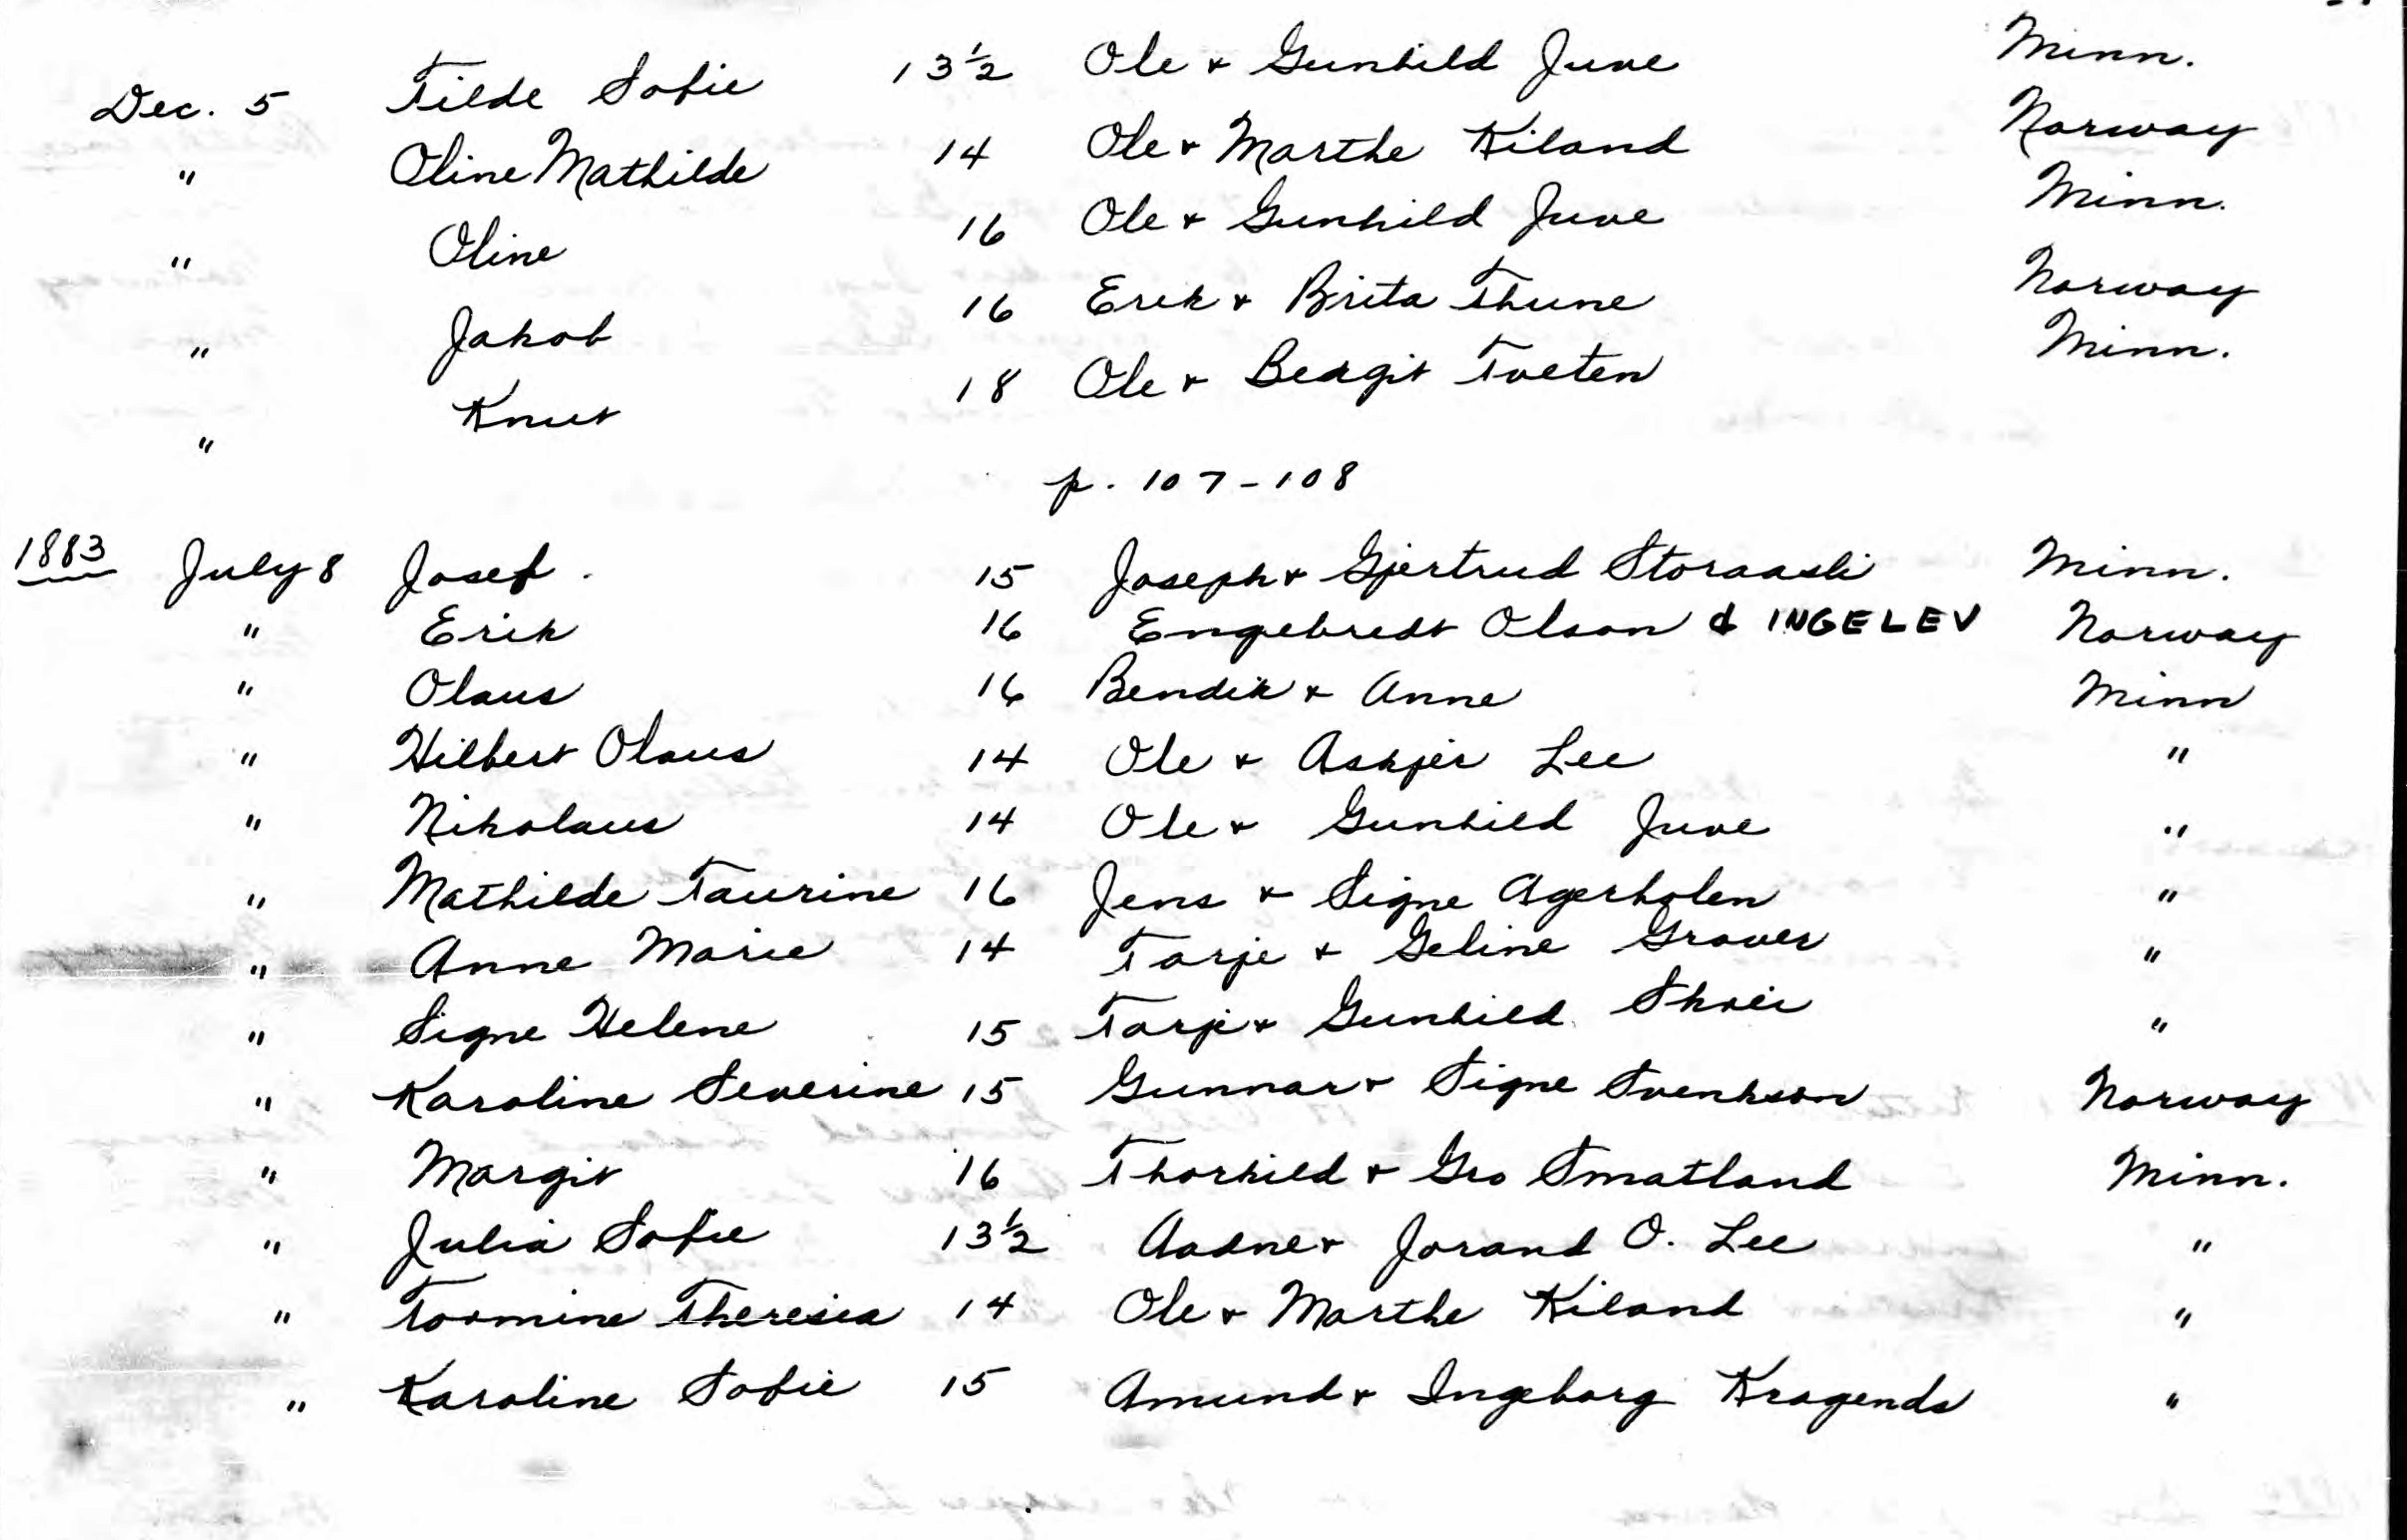 Dec. 5 Tilde Sofie 13½ Ole & Gunhild Juve Minn.
" Oline Mathilde 14 Ole & Marthe Kiland Norway
" Oline 16 Ole & Gunhild Juve Minn.
" Jakob 16 Erik & Brita Thune Norway
" Knut 18 Ole & Bergit Tveten Minn.
p. 107-108
1883 July 8 Josef. 15 Joseph & Gjertrud Storaasli Minn.
" Erik 16 Engebredt Olson & INGELEV Norway
" Olaus 16 Bendik & Anne Minn
" Hilbert Olaus 14 Ole & Askjer Lee "
" Nikolaus 14 Ole & Gunhild Juve "
" Mathilde Taurine 16 Jens & Signe Agerholen "
" Anne Marie 14 Tarje & Geline Graver "
" Signe Helene 15 Tarje & Gunhild Skrei "
" Karoline Severine 15 Gunnar & Signe Svenkson Norway
" Margit 16 Thorkild & Gro Smatland Minn.
" Julia Sofie 13½ Aadne & Jorand O. Lee "
" Tormine Theresia 14 Ole & Marthe Kiland "
" Karoline Sofie 15 Amund & Ingeborg Kragends "